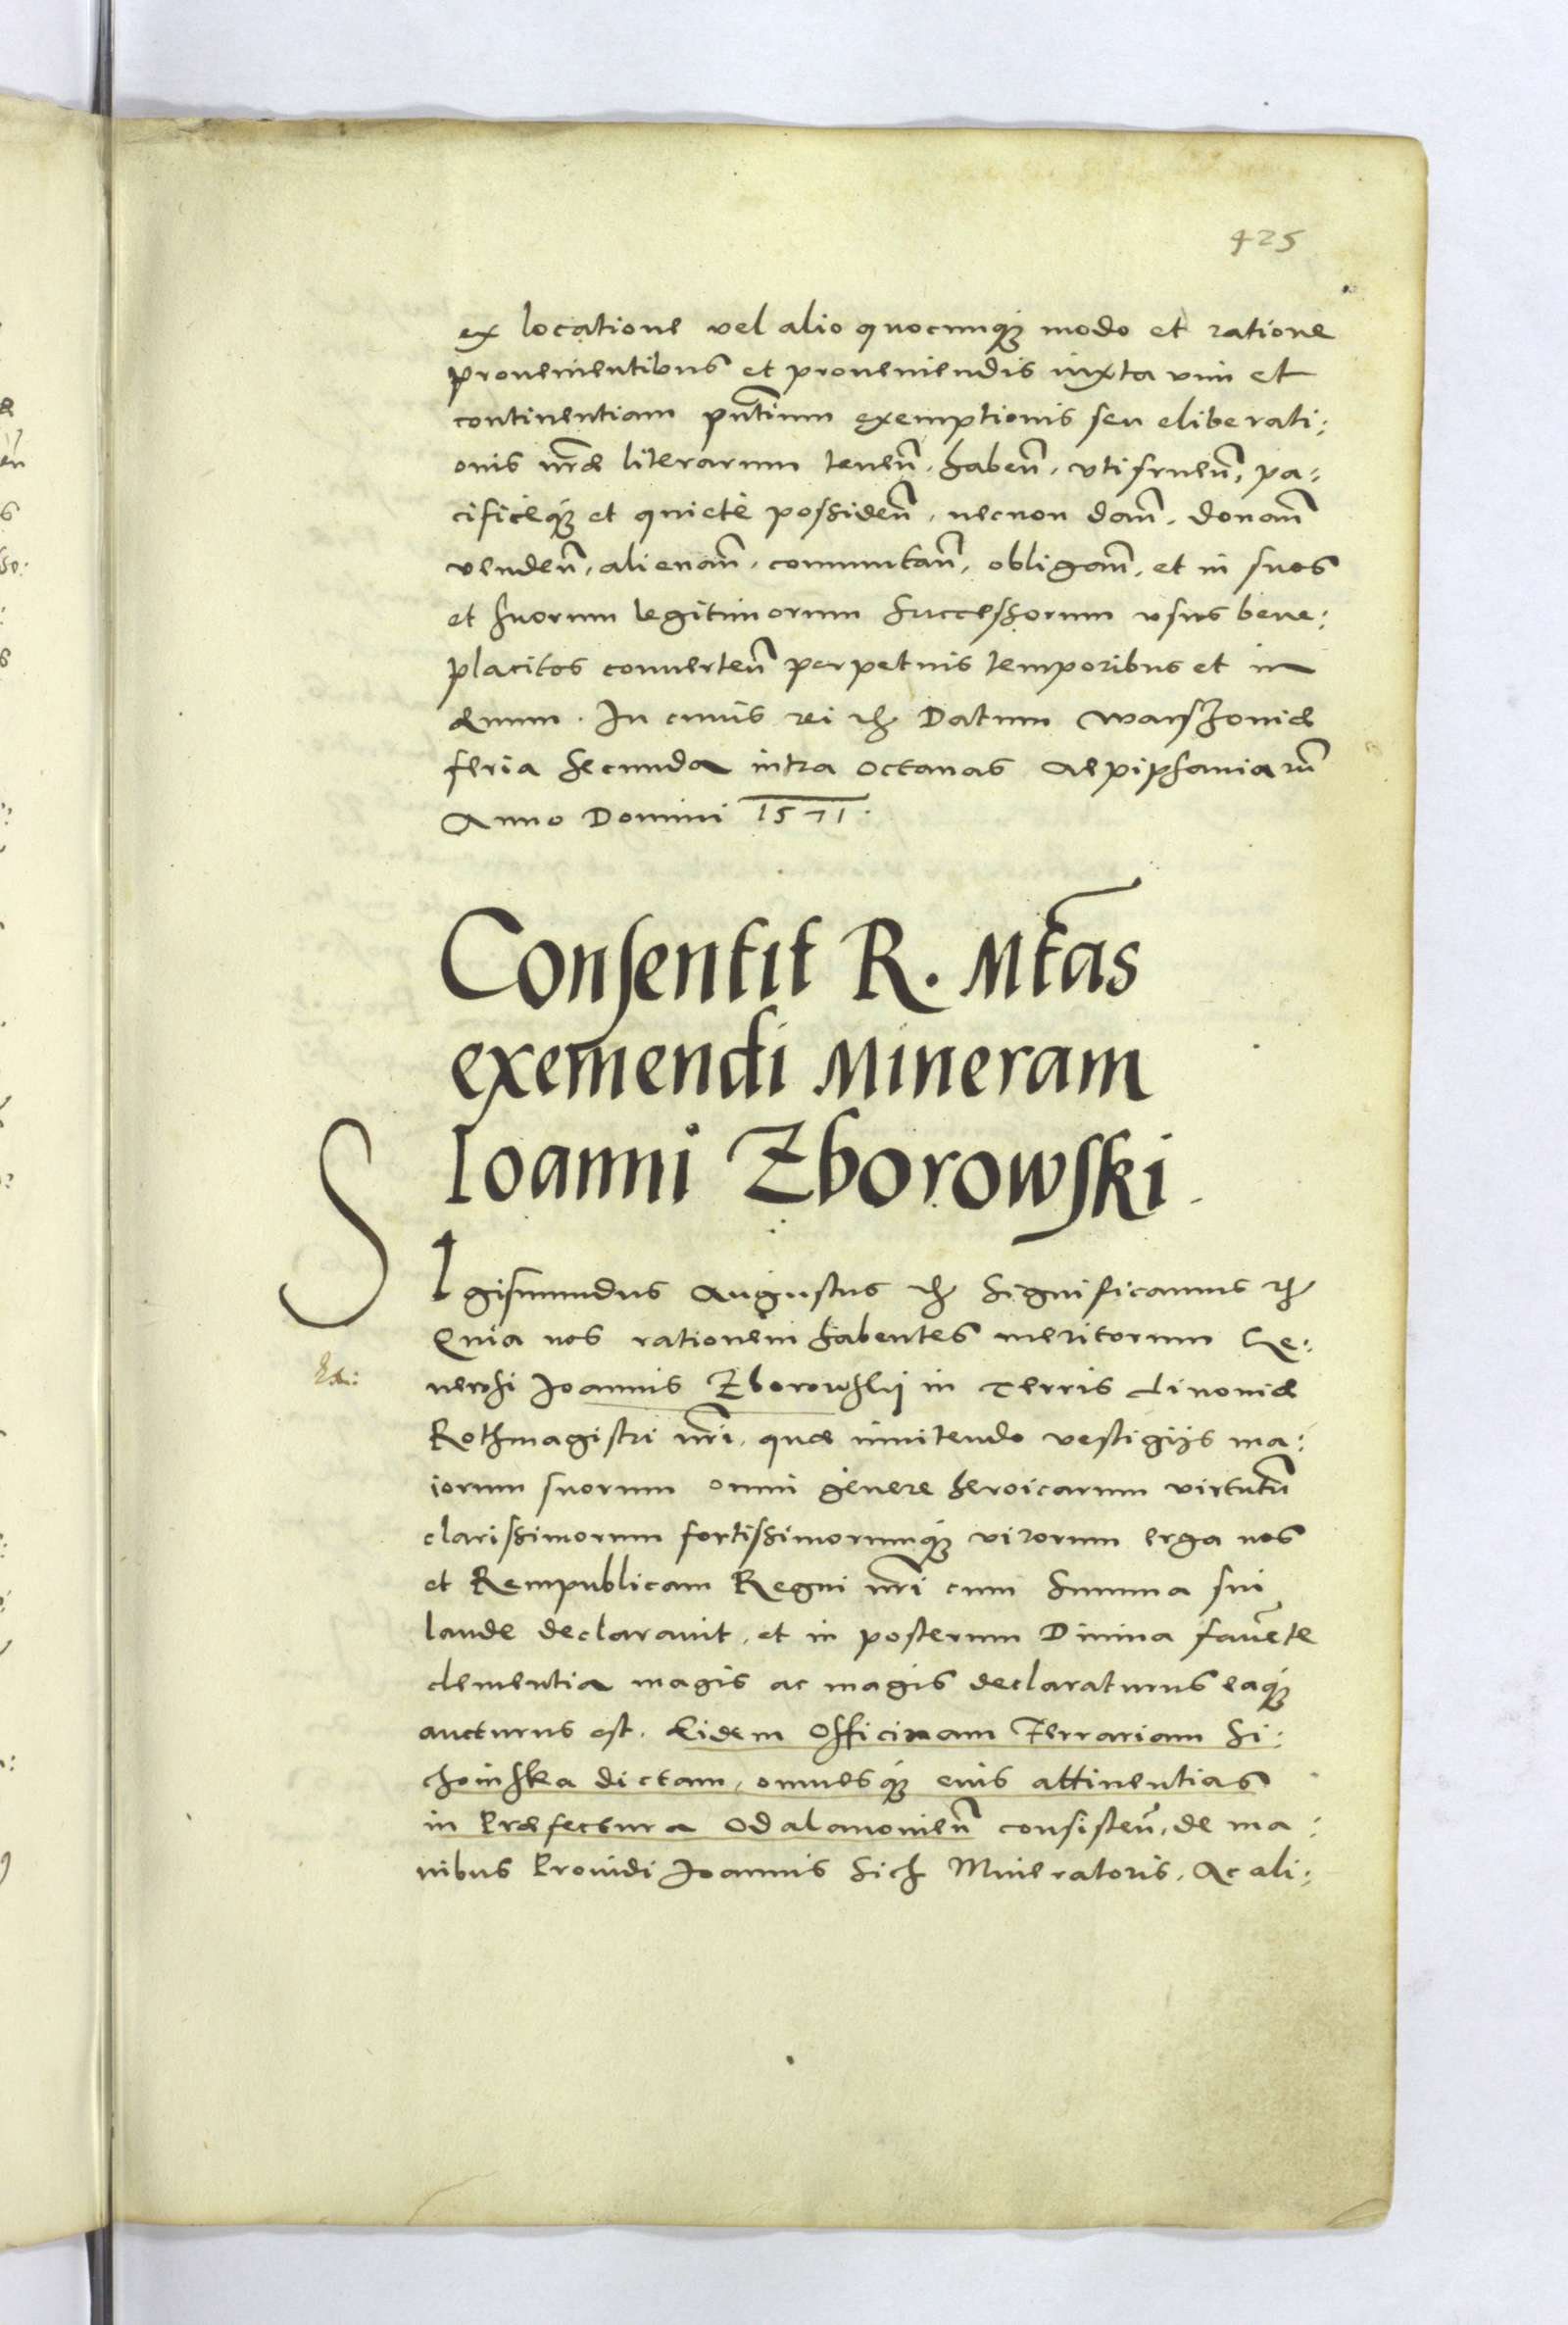 425
ex locatione vel alio quocunq; modo et ratione
provenientibus et proveniendis iuxta vim et
continentiam pntium exemptionis seu eliberati:
onis nræ literarum tenen̄. haben̄. utifruen̄, pa:
cificèq; et quietè possiden̄, necnon dan̄. donan̄
venden̄, alienan̄. commutan̄, obligan̄. et in suos
et suorum legitimorum successorum usus bene:
placitos converten̄ perpetuis temporibus et in
ævum. In cuius rei etc. Datum Warszoviæ
feria secunda intra octavas Aepiphaniarū
Anno Domini 1571.
Consentit R. Mtas
exemendi Mineram
Ioanni Zborowski.
SIgismundus Augustus etc. Significamus etc.
Quia nos rationem habentes meritorum Ge:
nerosi Joannis Zborowskij in Terris Livoniæ
Rothmagistri nri, quæ innitendo vestigijs ma:
iorum suorum omni genere heroicarum virtutū
clarissimorum fortissimorumq; virorum erga nos
et Rempublicam Regni nri cum summa sui
laude declaravit, et in posterum Divina favēte
clementia magis ac magis declaraturus eaq;
aucturus est. Eidem Officinam Ferrariam Si:
choinska dictam, omnesq; eius attinentias
in Præfectura Odalanovien̄ consisten̄, de ma:
nibus Providi Joannis Sich Mineratoris, Ac ali: